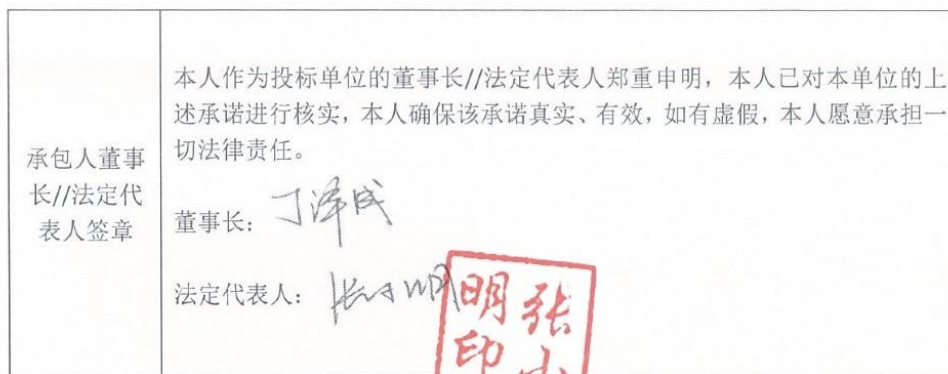 承包人董事
长//法定代
表人签章
本人作为投标单位的董事长//法定代表人郑重申明，本人已对本单位的上
述承诺进行核实，本人确保该承诺真实、有效，如有虚假，本人愿意承担一
切法律责任。
董事长：丁泽成
法定代表人：
张
明印